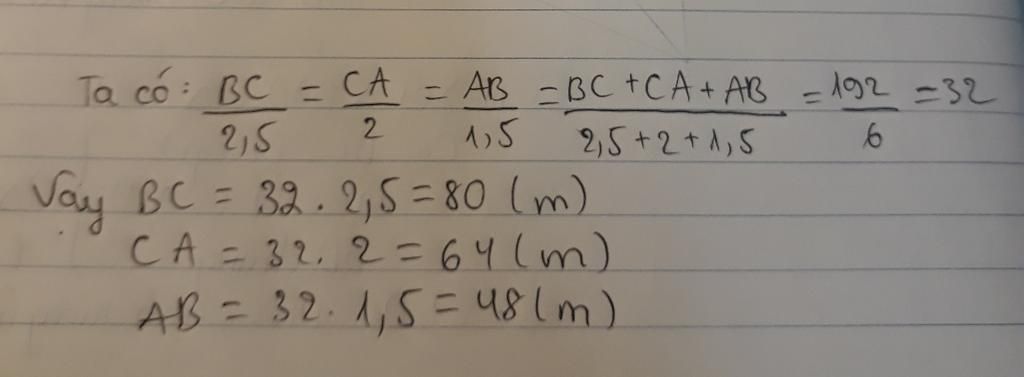 Ta có: BC/2,5 = CA/2 = AB/1,5 = BC+CA+AB/2,5+2+1,5 = 192/6 = 32
Vậy BC = 32 . 2,5 = 80 (m)
CA = 32 . 2 = 64 (m)
AB = 32 . 1,5 = 48 (m)